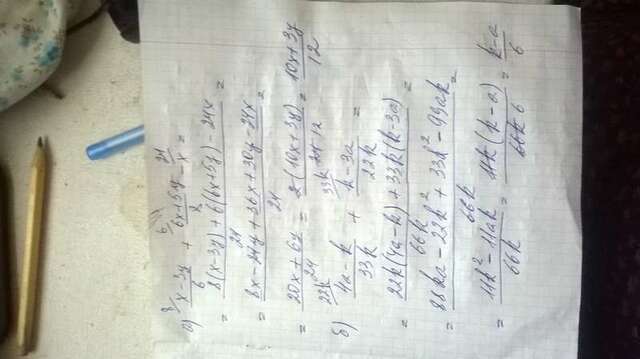 а) x-3y/6 + 6x+5y/8 - x =
= 8(x-3y)+6(6x+5y)-24x/24 =
= 8x-24y+36x+30y-24x/24 =
= 20x+6y/24 = 2(10x+3y)/24 12 = 10x+3y/12
б) 4a-k/33k + k-3a/22k =
= 22k(4a-k)+33k(k-3a)/66k² =
= 88ka-22k²+33k²-99ak/66k =
= 11k²-11ak/66k = 11k(k-a)/66k 6 = k-a/6